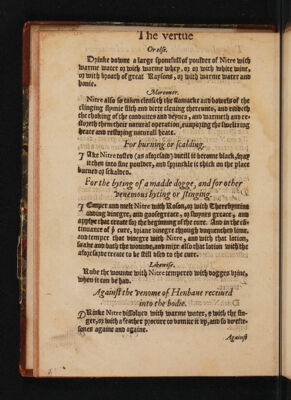 The vertue
Or else.
DRinke downe a large spoonefull of pouder of Nitre with
warme water or with warme whey, or or with white wine,
or with broath of great Raysons, or with warme water and
honie.
Moreouer.
Nitre also so taken clenseth the stomacke and bowels of the
clinging slymie filth and dere cleuing thereunto, and riddeth
the choking of the conduites and veynes, and warmeth and re-
storeth them their natural operation, expulsing the sweltring
heate and restoring naturall heate.
For burning or scalding.
TAke Nitre tosted (as aforesayd) vntill it become black, bray
it then into fine pouder, and sprinckle it thick on the place
burned or skalded.
For the byting of a madde dogge, and for other
venemous byting or stinging.
TEmper and melt Nitre with Rosen, or with Therebyntine
adding vinegre, and goosegreace, or swynes greace, and
applye that treate for the beginning of the cure. And in the con-
tinuance of þ cure, driue vinegre through buquenched lime,
and temper that vinegre with Nitre, and with that lotion,
soake and bath the wounde, annoint also that lotion with the
aforesayde treate to be still vsed to the cure.
Likewise.
Rubbe the wounde with Nitre tempered with dogges vrine,
when it can be had.
Against the venome of Henbane receiued
into the bodie.
DRinke Nitre dissolued with warme water, & with the fin-
ger, or with a feather procure to vomite it vp, and so douste-
sones againe and againe.
Against